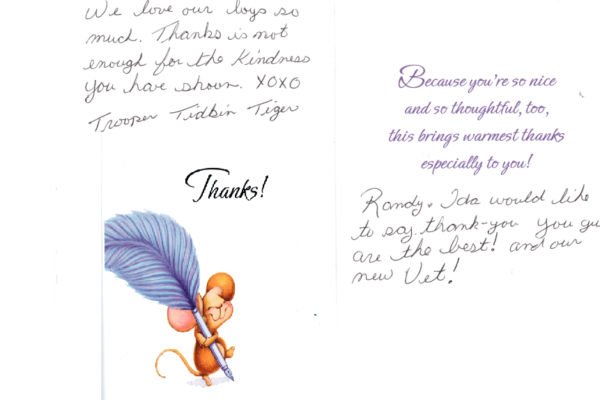 We love our boys so
much. Thanks is not
enough for the kindness
you have shown. XOXO
Trooper Tidbin Tiger
Thanks!
Because you're so nice
and so thoughtful, too,
this brings warmest thanks
especially to you!
Randy & Ida would like
to say thank-you you gu
are the best! and our
new Vet!